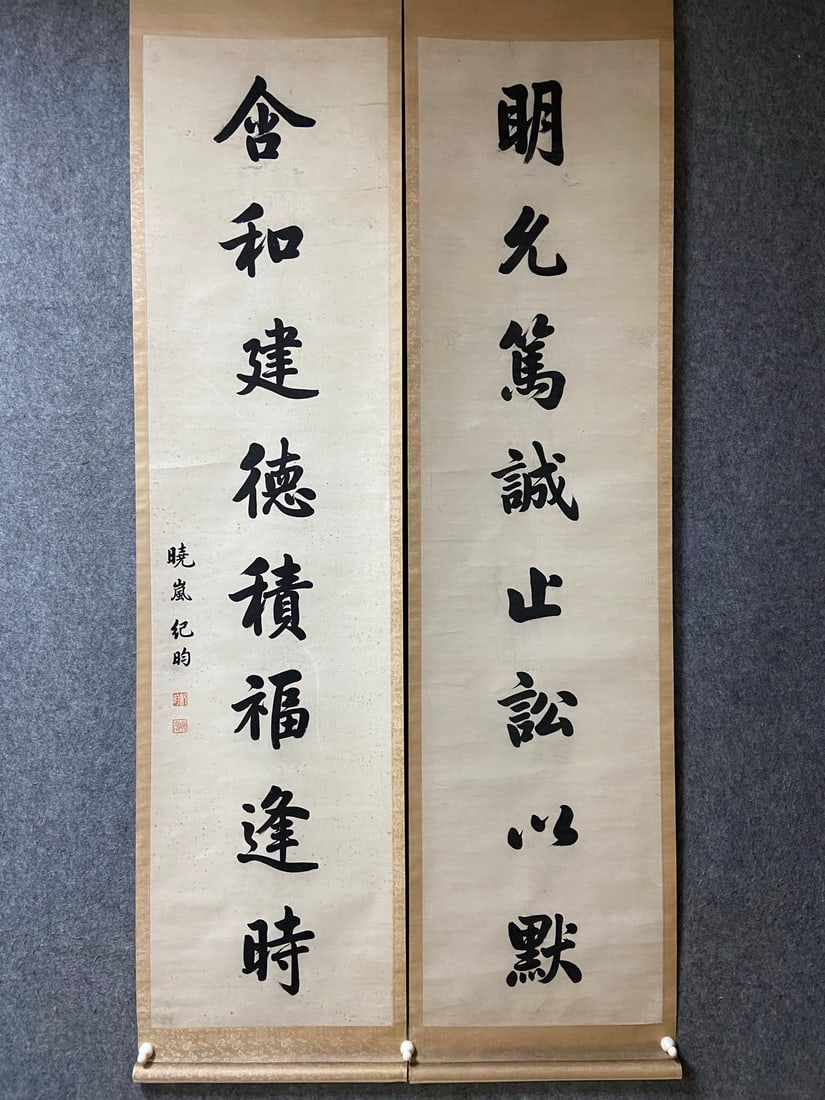 明允篤誠止訟以默
含和建德積福逢時
曉嵐紀昀